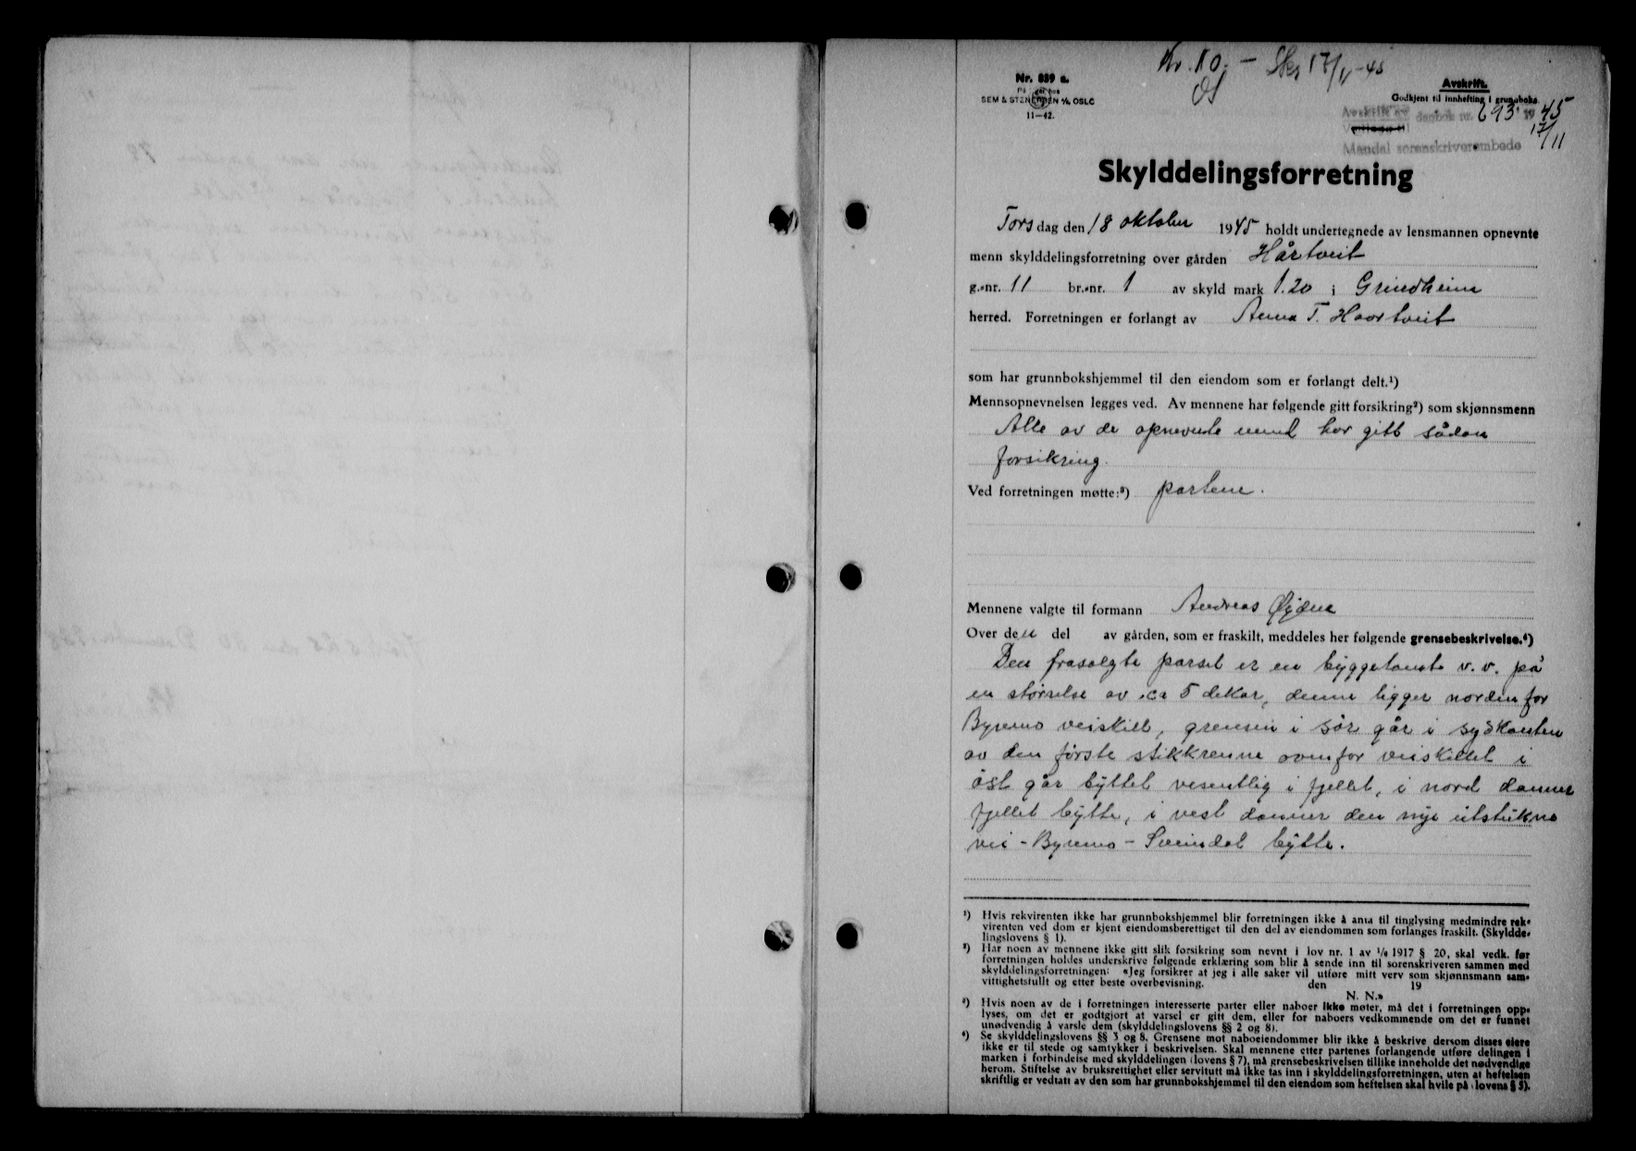 Nr. 10. – Skr 17/11-45
Nr. 839 a.
SEM & STENERSEN A/S OSLO
11–42.
Avskrift.
Godkjent til innhefting i grunnboka.
Avskrift av dagbok nr. 693 1945
17/11
Mandal sorenskriverembede
Skylddelingsforretning
Torsdag den 18 oktober 1945 holdt undertegnede av lensmannen opnevnte
menn skylddelingsforretning over gården Hårtveit
g.-nr. 11 br.-nr. 1 av skyld mark 1.20 i Grindheim
herred. Forretningen er forlangt av Anna T. Haartveit
som har grunnbokshjemmel til den eiendom som er forlangt delt.¹)
Mennsopnevnelsen legges ved. Av mennene har følgende gitt forsikring²) som skjønnsmenn
Alle av de opnevnte menn har gitt sådan
forsikring.
Ved forretningen møtte:³) partene.
Mennene valgte til formann Andreas Øydna
Over den del av gården, som er fraskilt, meddeles her følgende grensebeskrivelse.⁴)
Den frasolgte parsel er en byggetomt v. v. på
en størrelse av ca 5 dekar, denne ligger nordenfor
Byremo veiskill, grensen i sør går i sydkanten
av den første stikkrenne ovenfor veiskillet i
øst går byttet vesentlig i fjellet, i nord danner
fjellet bytte, i vest danner den nye utstukne
vei - Byremo - Sveindal bytte.
¹) Hvis rekvirenten ikke har grunnbokshjemmel blir forretningen ikke å anta til tinglysing medmindre rek-
virenten ved dom er kjent eiendomsberettiget til den del av eiendommen som forlanges fraskilt. (Skyldde-
lingslovens § 1).
²) Har noen av mennene ikke gitt slik forsikring som nevnt i lov nr. 1 av 1/6 1917 § 20, skal vedk. før
forretningen holdes underskrive følgende erklæring som blir å sende inn til sorenskriveren sammen med
skylddelingsforretningen: «Jeg forsikrer at jeg i alle saker vil utføre mitt verv som skjønnsmann sam-
vittighetsfullt og etter beste overbevisning. den 19
N. N.»
³) Hvis noen av de i forretningen interesserte parter eller naboer ikke møter, må det i forretningen opp-
lyses, om det er godtgjort at varsel er gitt dem, eller for naboers vedkommende om det er funnet
unødvendig å varsle dem (skylddelingslovens §§ 2 og 8).
⁴) Se skylddelingslovens §§ 3 og 8. Grensene mot naboeiendommer blir ikke å beskrive dersom disses eiere
ikke er til stede og samtykker i beskrivelsen. Skal mennene etter partenes forlangende utføre delingen i
marken i forbindelse med skylddelingen (lovens § 7), må grensebeskrivelsen tillike inneholde det nødvendige
herom. Stiftelse av bruksrettighet eller servitutt må ikke tas inn i skylddelingsforretningen, uten at heftelsen
skriftlig er vedtatt av den som har grunnbokshjemmel til den eiendom som heftelsen skal hvile på (lovens § 5).